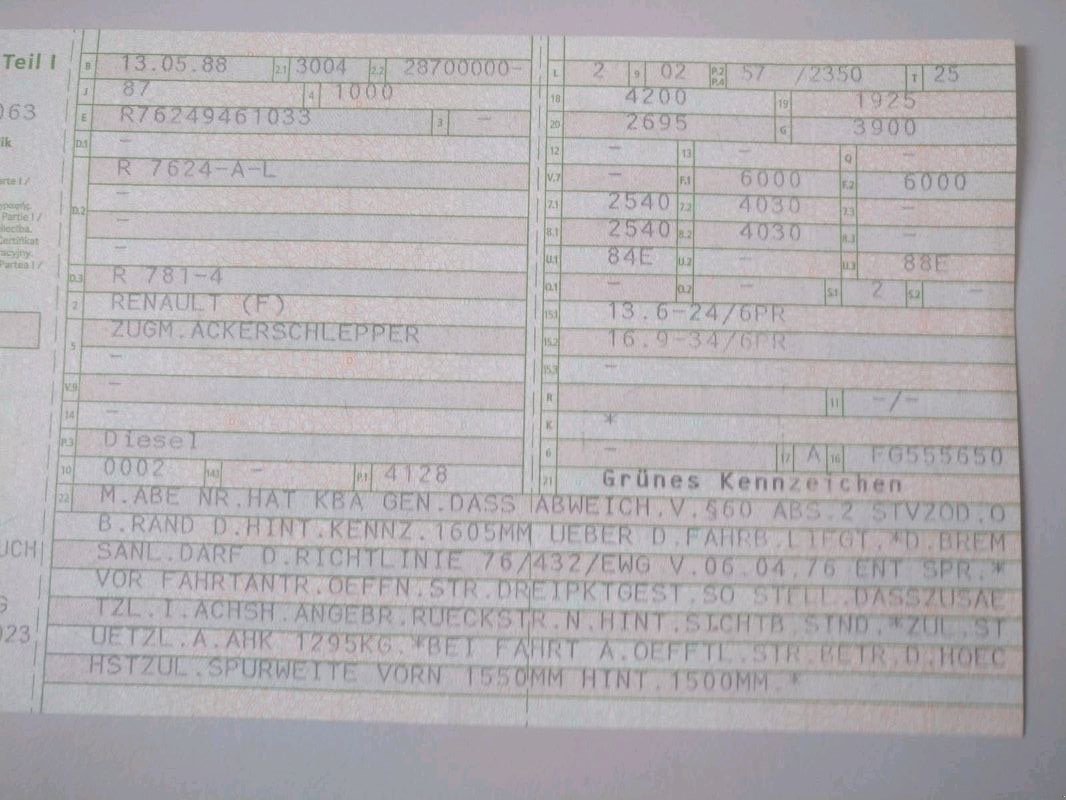 Teil I
B 13.05.88 2.1 3004 2.2 28700000-
J 87 4 1000
063
E R76249461033 3 -
D.1 -
R 7624-A-L
-
D.2 -
-
D.3 R 781-4
2 RENAULT (F)
5 ZUGM.ACKERSCHLEPPER
-
V.9 -
14 -
P.3 Diesel
10 0002 14.1 - P.1 4128
L 2 9 02 P.2 P.4 57 /2350 T 25
18 4200 19 1925
20 2695 G 3900
12 - 13 - Q -
V.7 - F.1 6000 F.2 6000
7.1 2540 7.2 4030 7.3 -
8.1 2540 8.2 4030 8.3 -
U.1 84E U.2 - U.3 88E
O.1 - O.2 - S.1 2 S.2 -
15.1 13.6-24/6PR
15.2 16.9-34/6PR
15.3 -
R 11 -/-
K *
6 - 17 A 16 FG555650
21 Grünes Kennzeichen
22 M.ABE NR.HAT KBA GEN.DASS ABWEICH.V.§60 ABS.2 STVZOD.O
B.RAND D.HINT.KENNZ.1605MM UEBER D.FAHRB.LIEGT.*D.BREM
SANL.DARF D.RICHTLINIE 76/432/EWG V.06.04.76 ENT SPR.*
VOR FAHRTANTR.OEFFN.STR.DREIPKTGEST.SO STELL.DASSZUSAE
TZL.I.ACHSH.ANGEBR.RUECKSTR.N.HINT.SICHTB.SIND.*ZUL.ST
UETZL.A.AHK 1295KG.*BEI FAHRT A.OEFFTL.STR.BETR.D.HOEC
HSTZUL.SPURWEITE VORN 1550MM HINT.1500MM.*